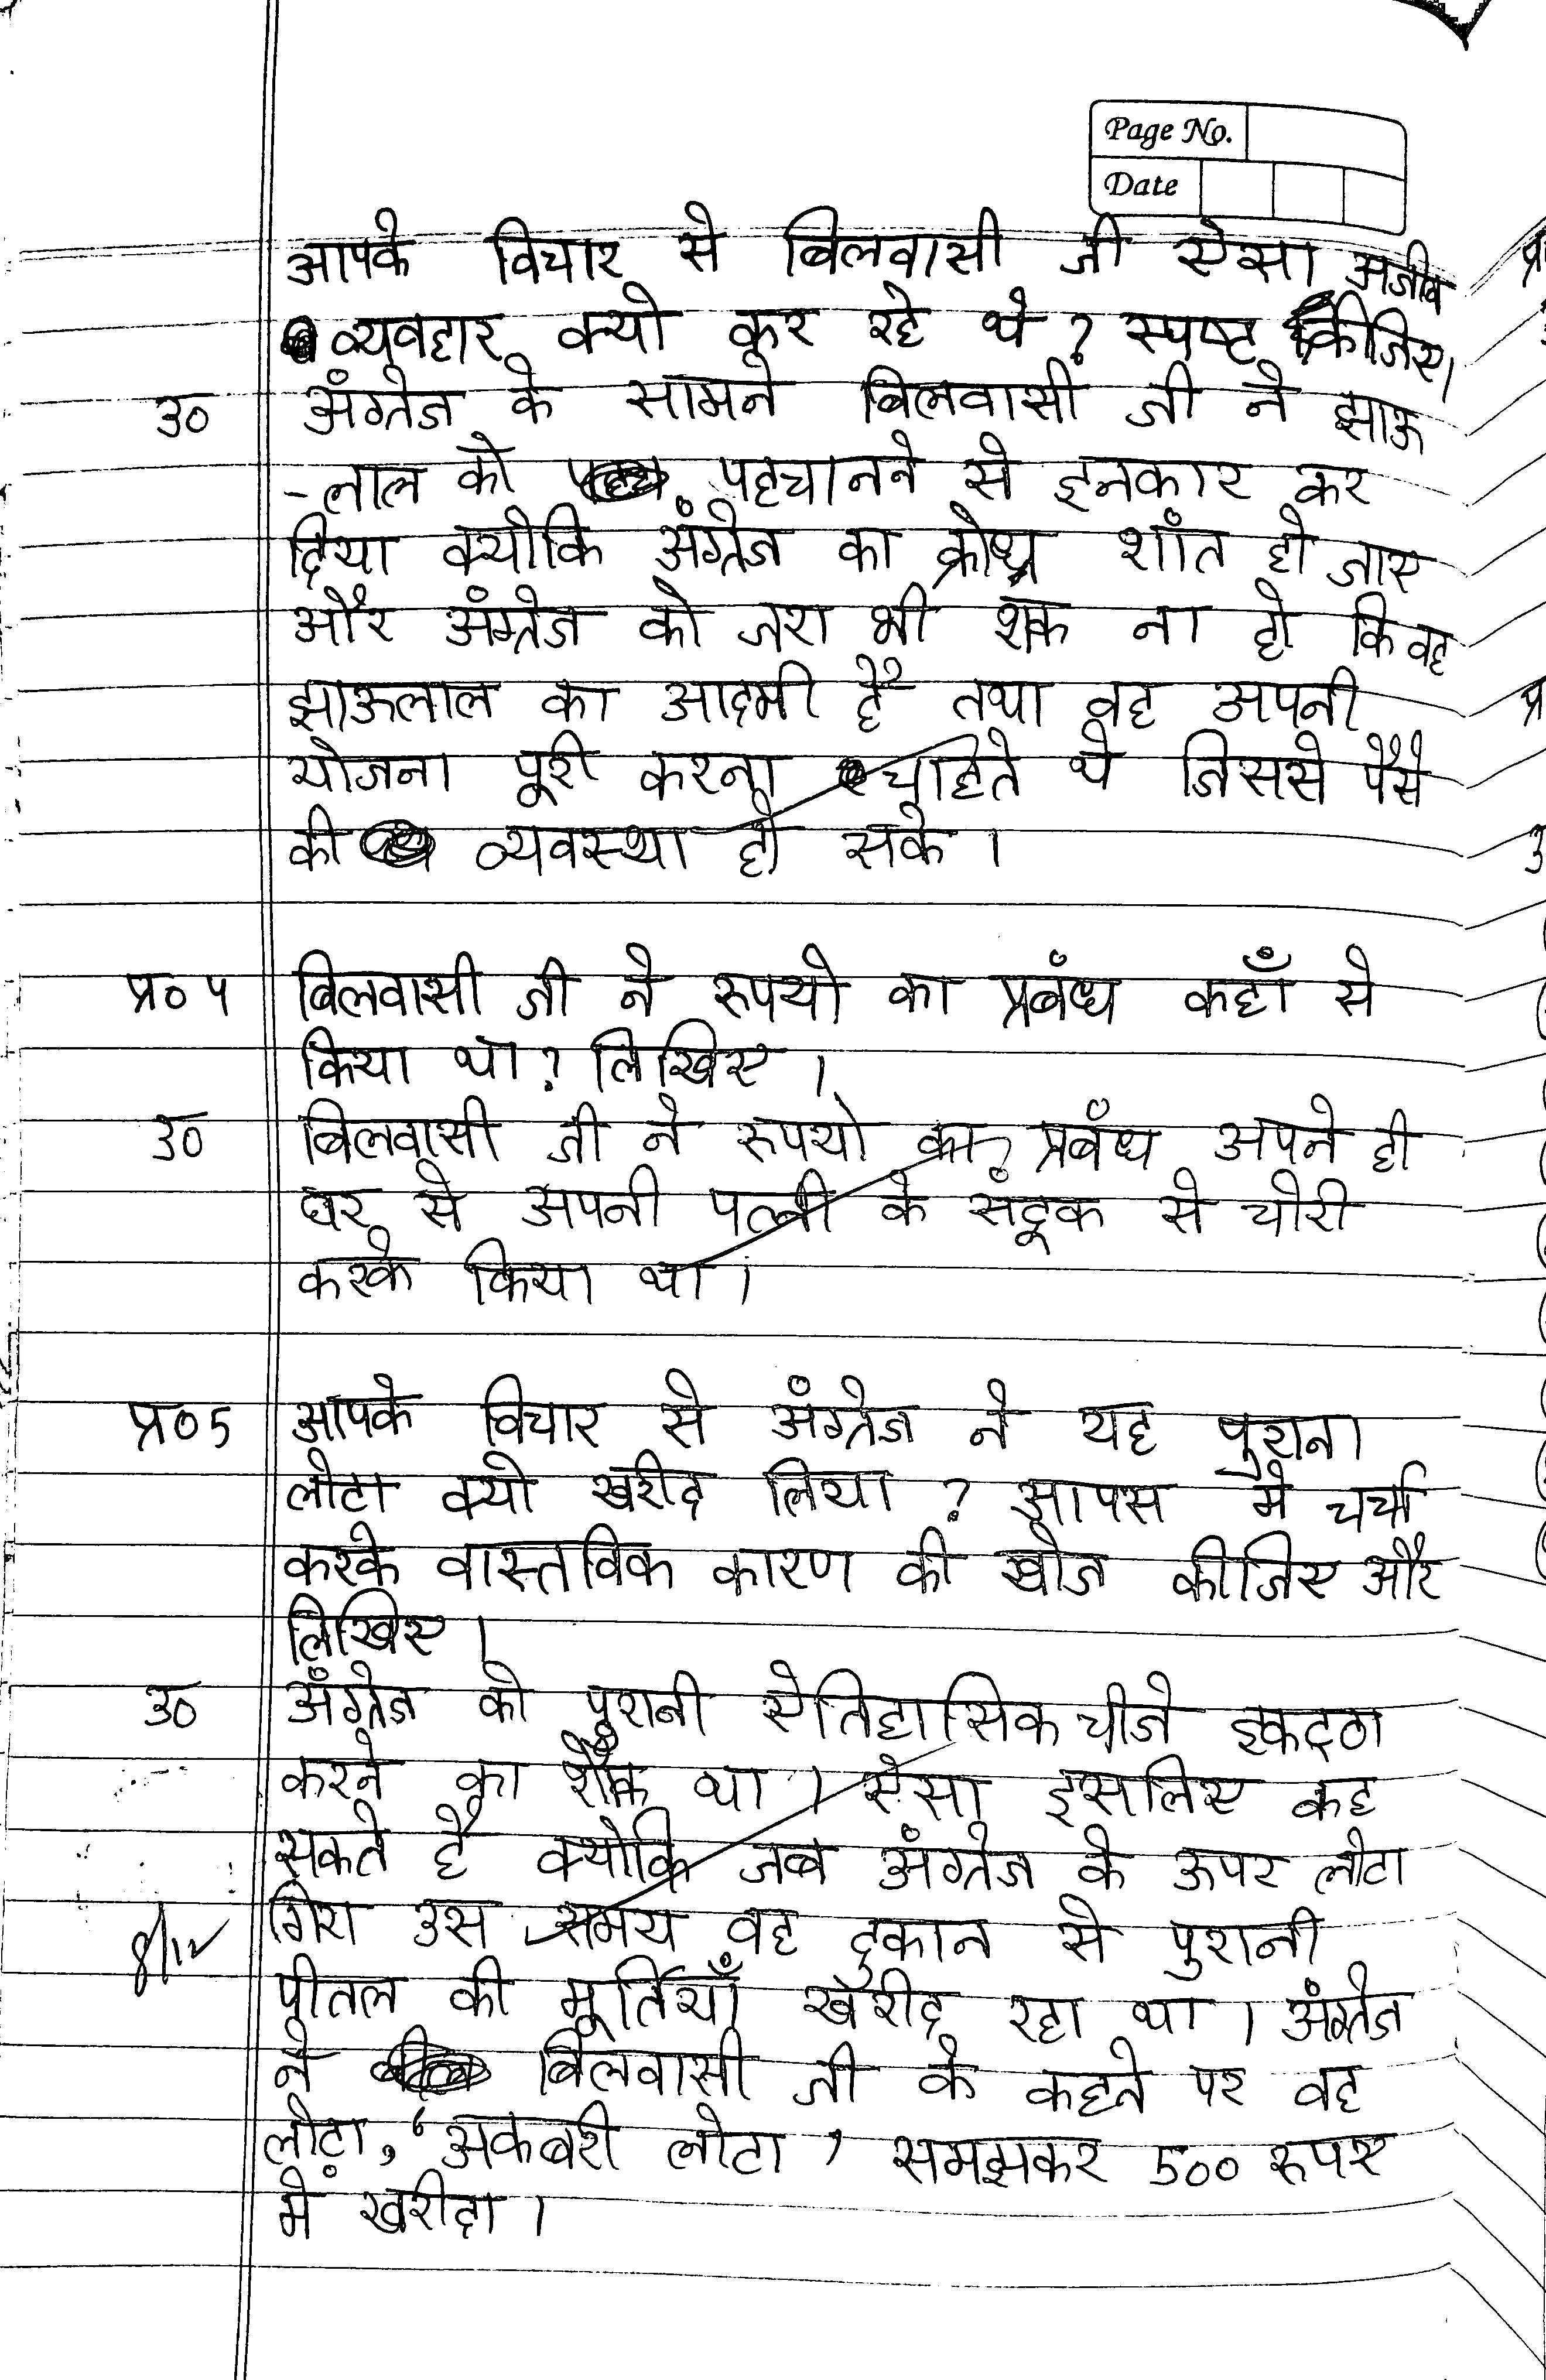 Page No.
Date
आपके विचार से बिलवासी जी ऐसा अजीब
व्यवहार क्यो कर रहे थे? स्पष्ट कीजिए।
उ० अंग्रेज के सामने बिलवासी जी ने झाऊ
-लाल को पहचानने से इनकार कर
दिया क्योकि अंग्रेज का क्रोध शांत हो जाए
और अंग्रेज को जरा भी शक ना हो कि वह
झाऊलाल का आदमी है तथा वह अपनी
योजना पूरी करना चाहिते थे जिससे पैसे
की व्यवस्था हो सके।
प्र० ५ बिलवासी जी ने रुपयो का प्रबंध कहाँ से
किया था? लिखिए।
उ० बिलवासी जी ने रुपयो का प्रबंध अपने ही
घर से अपनी पत्नी के संदूक से चोरी
करके किया था।
प्र० 5 आपके विचार से अंग्रेज ने यह पुराना
लोटा क्यो खरीद लिया? आपस मे चर्चा
करके वास्तविक कारण की खोज कीजिए और
लिखिए।
उ० अंग्रेज को पुरानी ऐतिहासिक चीजे इकट्ठा
करने का शौक था। ऐसा इसलिए कह
सकते है क्योकि जब अंग्रेज के ऊपर लोटा
गिरा उस समय वह दुकान से पुरानी
8/12
पीतल की मूर्तियाँ खरीद रहा था। अंग्रेज
ने बिलवासी जी के कहने पर वह
लोटा, 'अकबरी लोटा' समझकर 500 रुपए
में खरीदा।